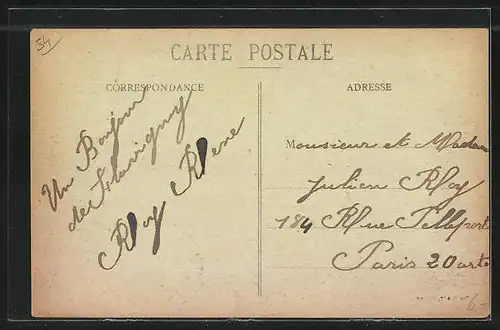 54
CARTE POSTALE
CORRESPONDANCE
ADRESSE
Un Bonjour
de Flavigny
Roy Rene
Monsieur et Madam
Julien Roy
184 Rue Pelleport
Paris 20 arts
6.-